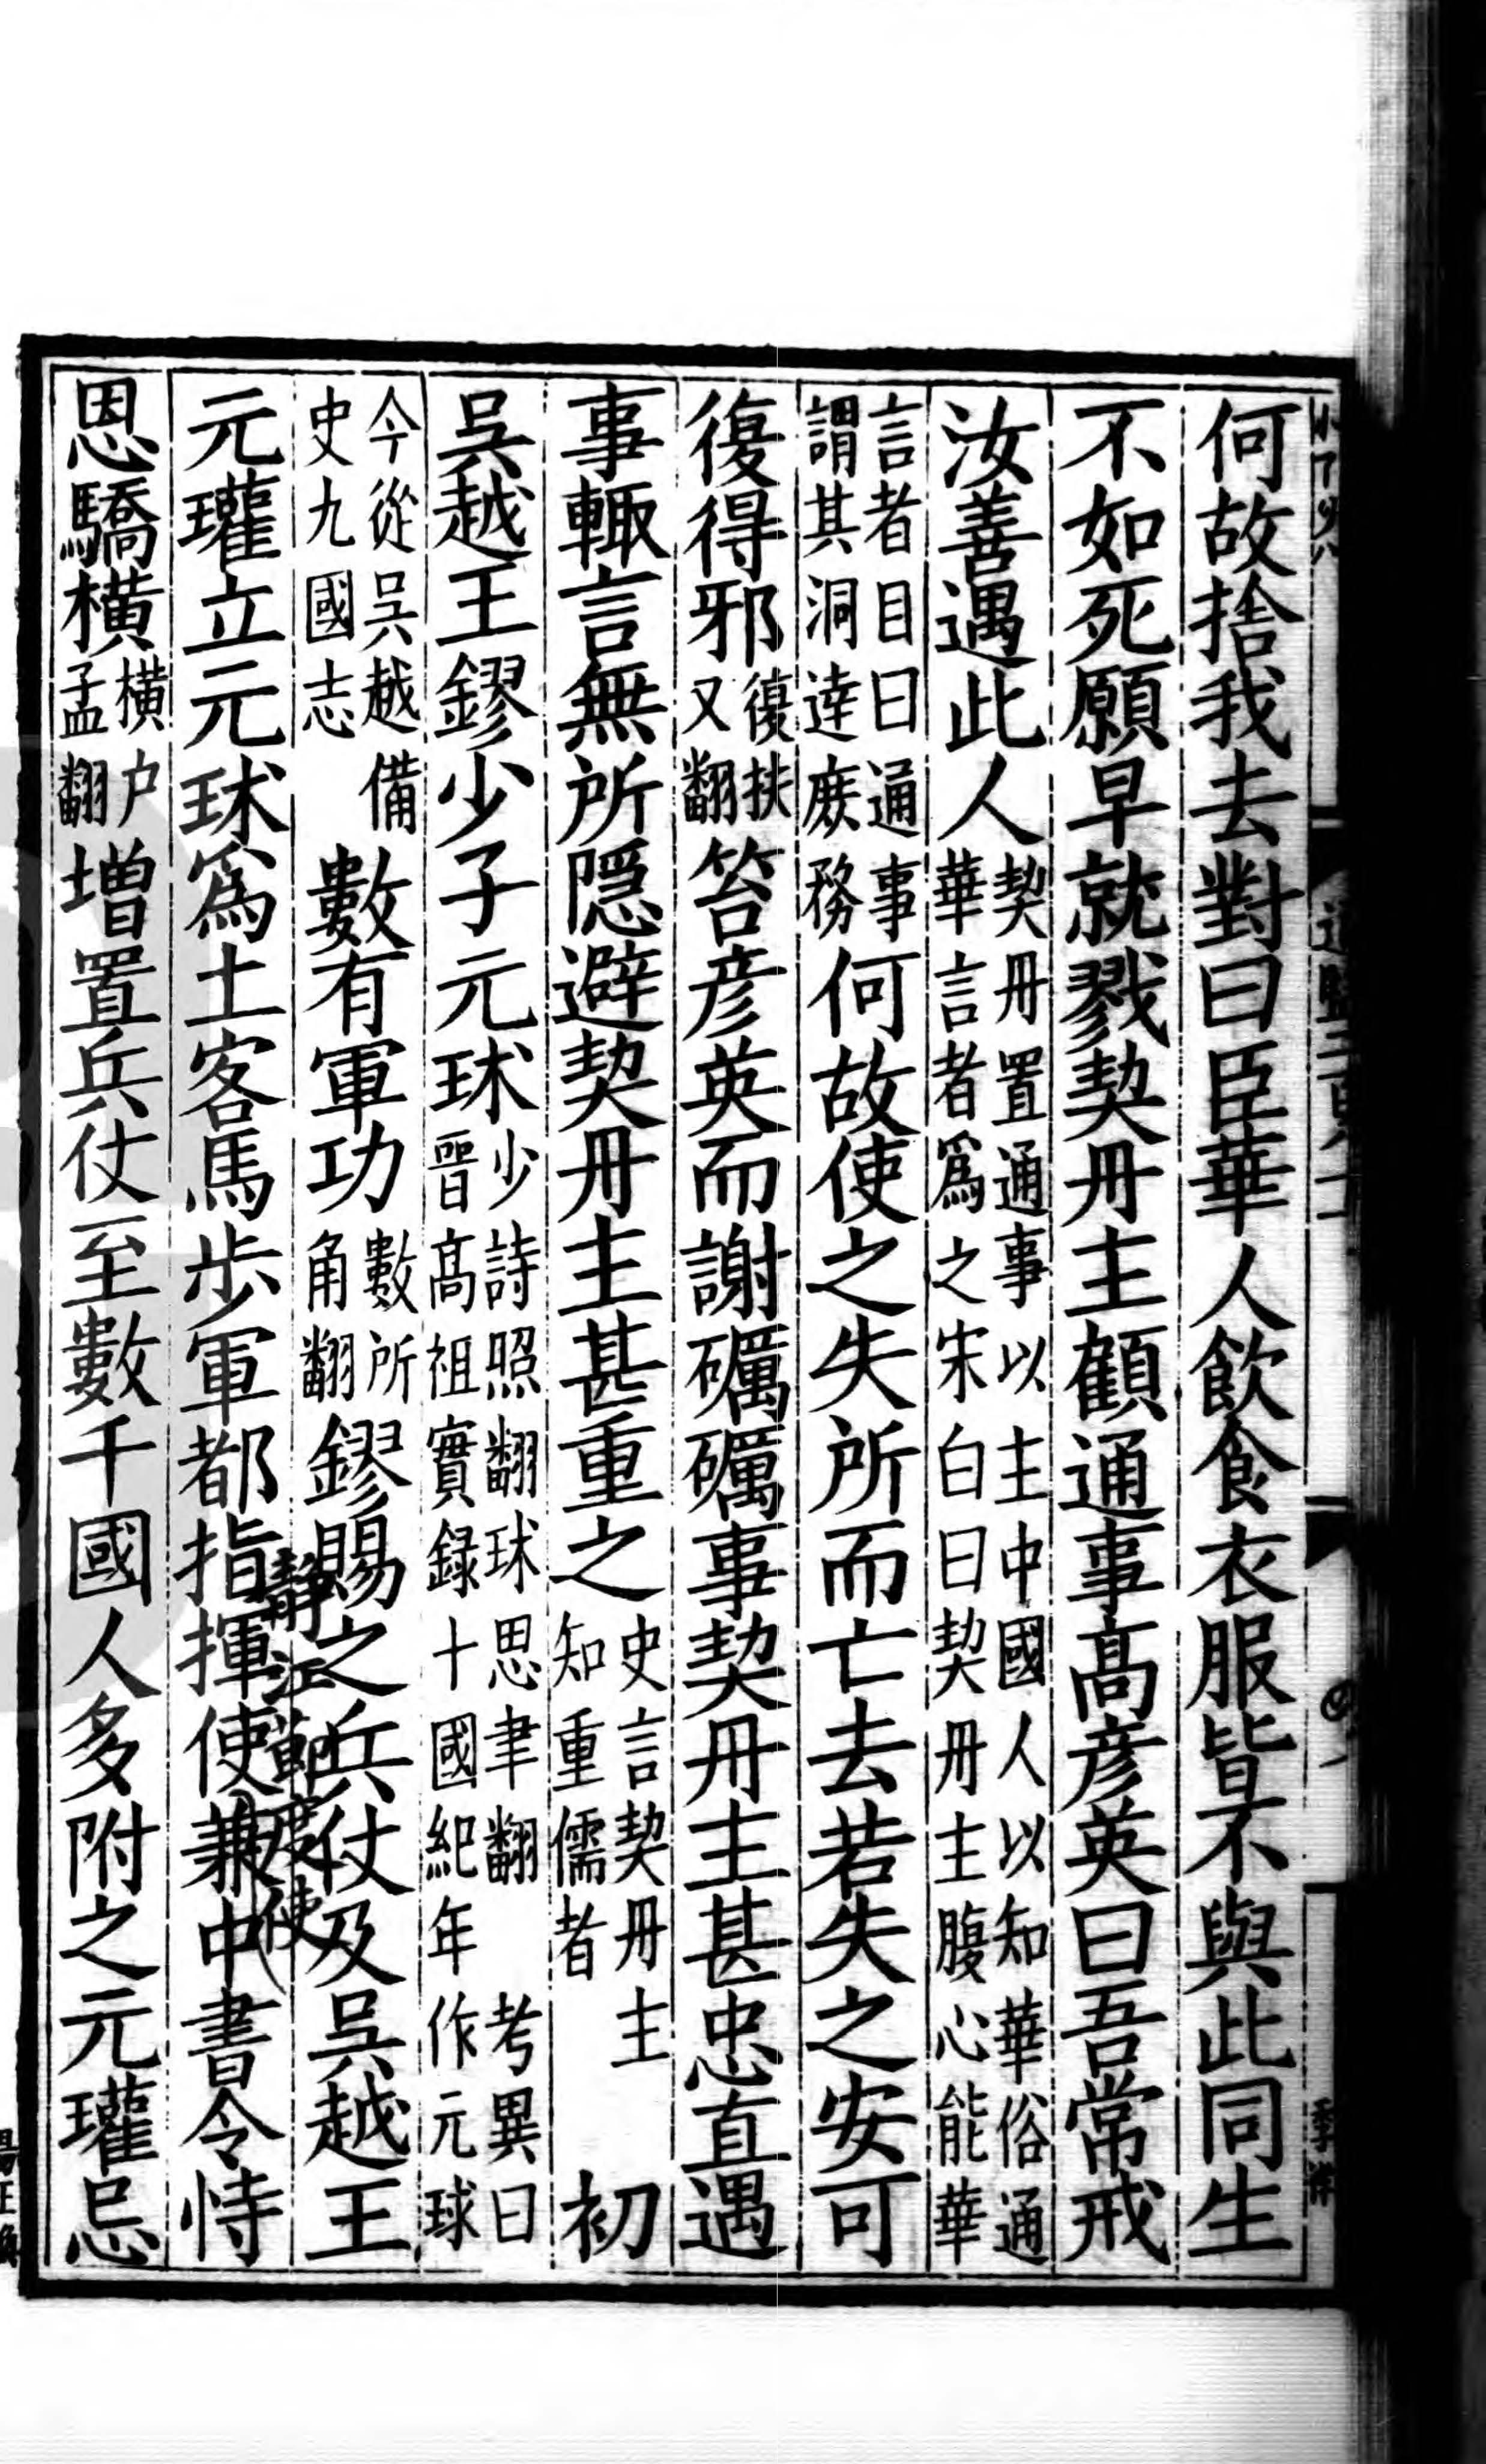 何故捨我去對曰臣華人飲食衣服皆不與此同生
不如死願早就戮契丹主顧通事高彦英曰吾常戒
汝善遇此人契丹置通事以主中國人以知華俗通華言者爲之宋白曰契丹主腹心能華
言者目曰通事謂其洞達庶務何故使之失所而亡去若失之安可
復得邪復扶又翻笞彦英而謝礪礪事契丹主甚忠直遇
事輙言無所隱避契丹主甚重之史言契丹主知重儒者初
吳越王鏐少子元球少詩照翻球思聿翻考異曰晉高祖實録十國紀年作元球
今從吳越備史九國志數有軍功數所角翻鏐賜之兵仗及吳越王
元瓘立元球爲土客馬歩軍都指揮使兼中書令恃
靜江節度使
恩驕橫橫户孟翻增置兵仗至數千國人多附之元瓘忌